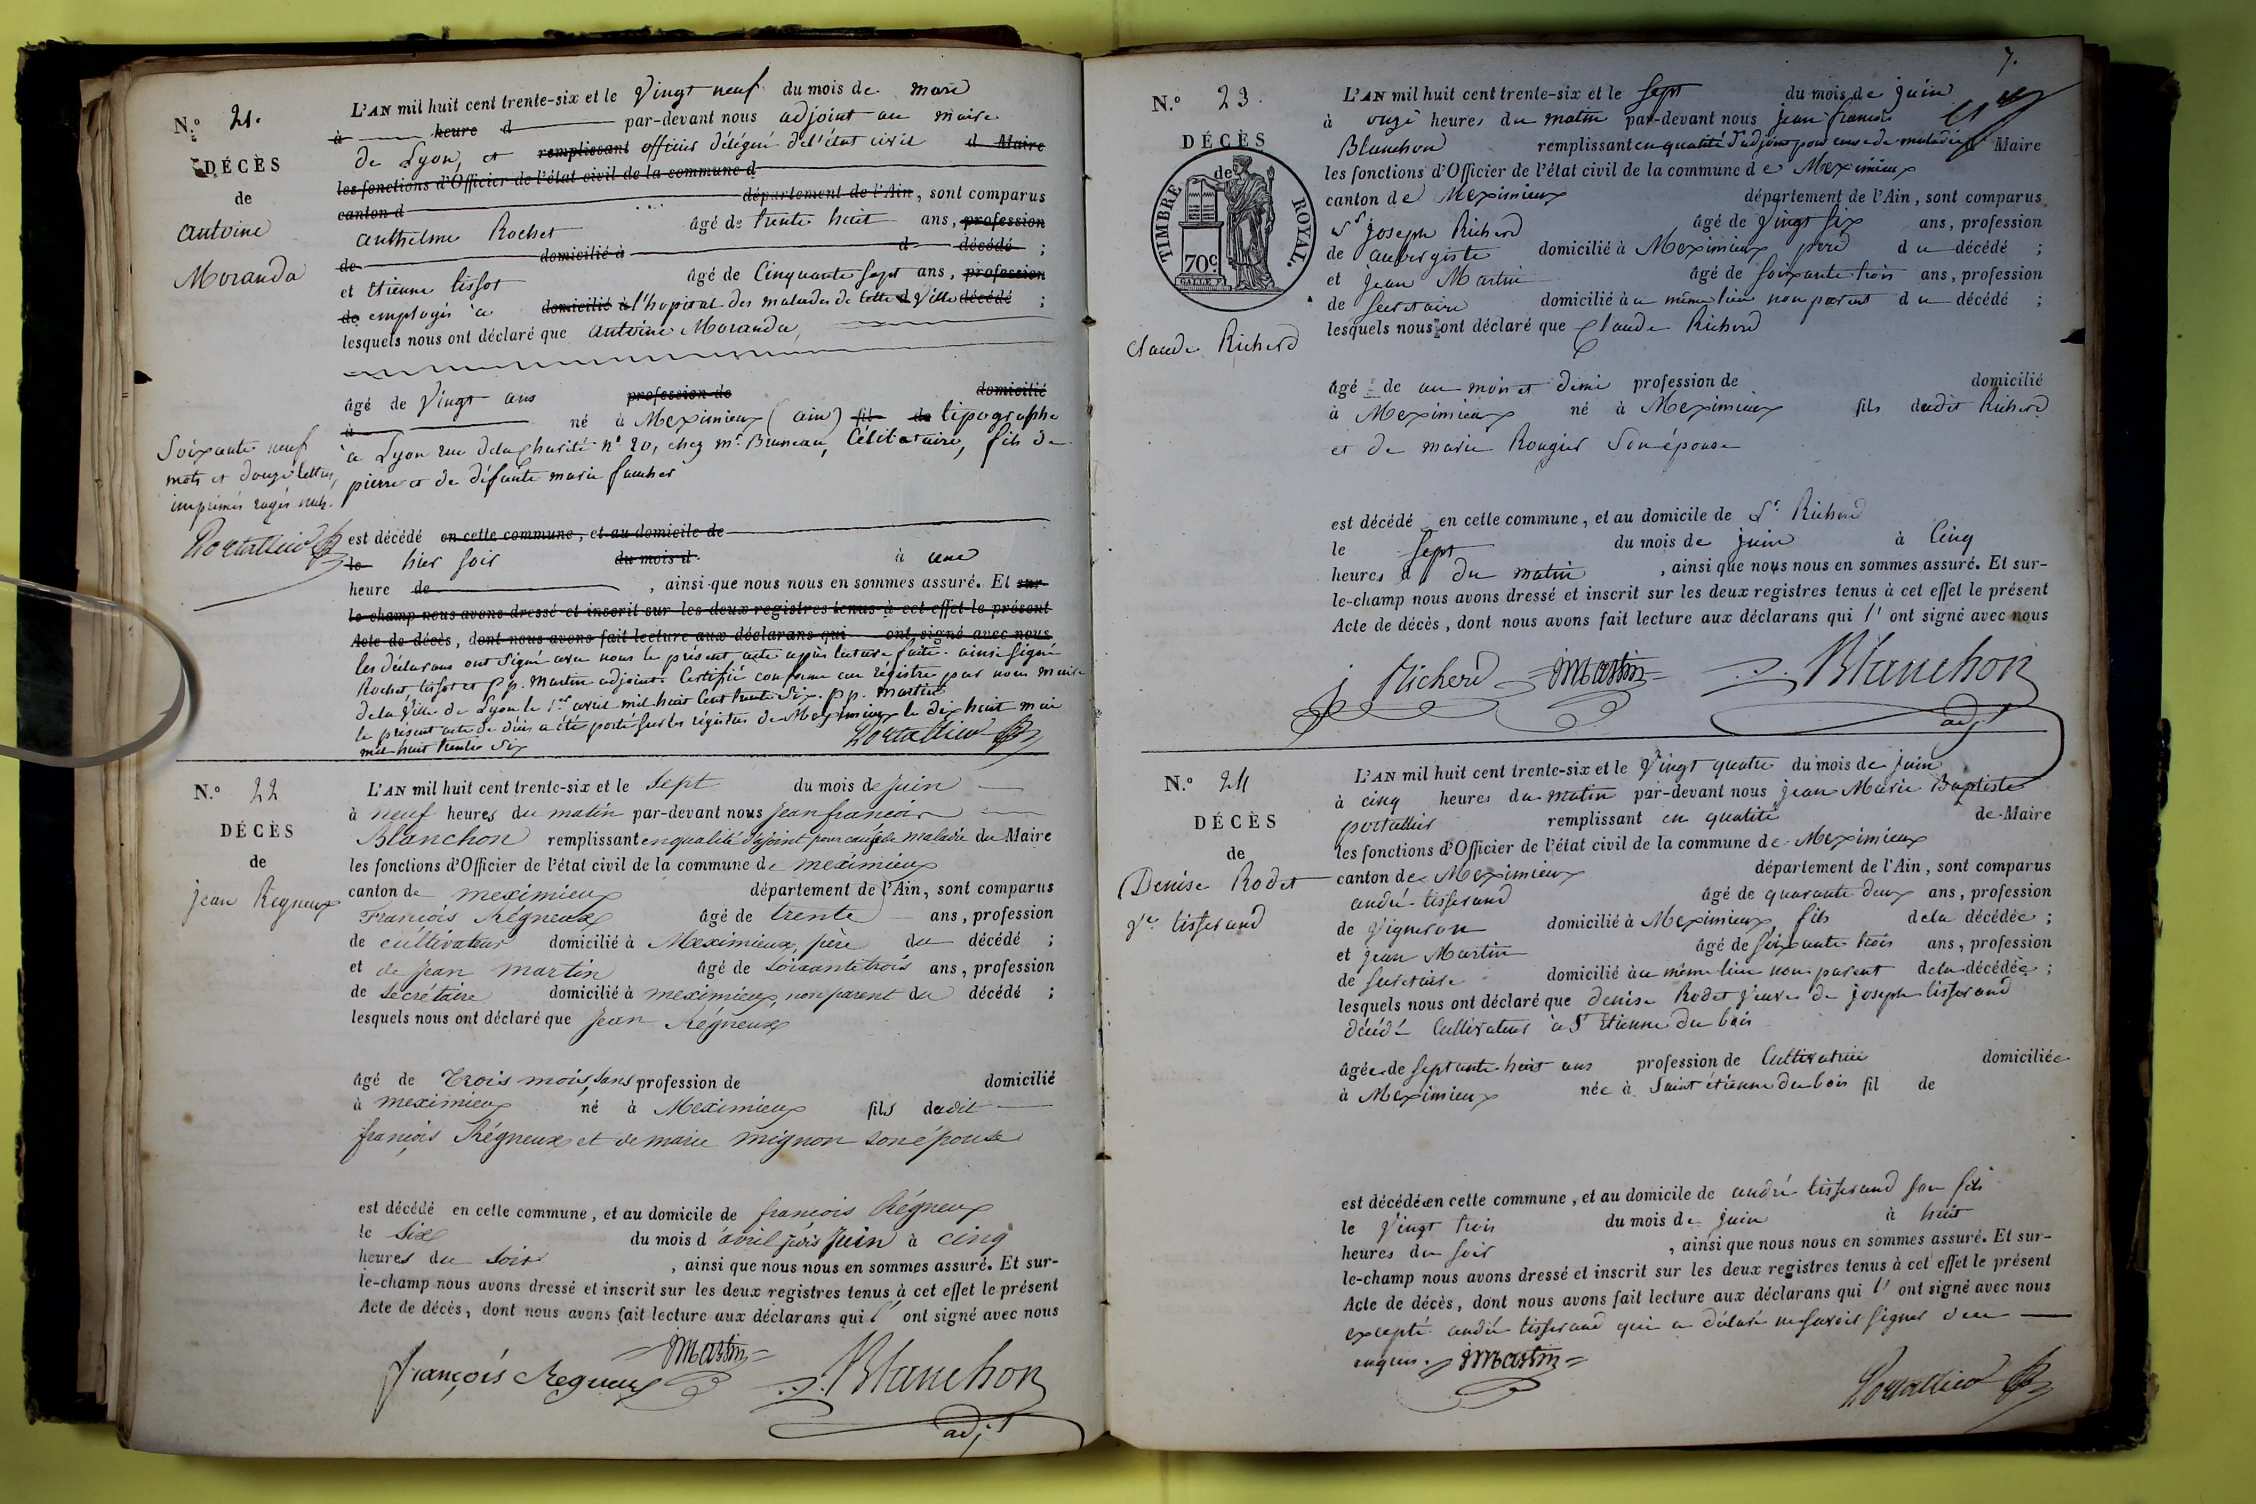 N.° 21.
DÉCÈS
de
Antoine
Moranda
L'AN mil huit cent trente-six et le Vingt neuf du mois de mars
à heure d par-devant nous adjoint au maire
de Lyon, et remplissant officier délégué de l'état civil d Maire
les fonctions d'Officier de l'état civil de la commune d
canton d département de l'Ain, sont comparus
Anthelme Rochet âgé de trente huit ans, profession
de domicilié à d décédé ;
et Etienne tissot âgé de Cinquante sept ans, profession
de employés à domicilié à l'hopital des malades de cette d Ville décédé ;
lesquels nous ont déclaré que Antoine Moranda,
âgé de Vingt ans profession de domicilié
à né à Meximieux (ain) fil de tipographe
à Lyon rue de la Charité n° 20, chez mr. Bruneau, Célibataire, fils de
pierre et de défunte marie faucher
Soixante neuf
mots et douze lettres
imprimés rayés nuls.
Portallier
est décédé en cette commune, et au domicile de
le hier soir du mois d à une
heure de , ainsi que nous nous en sommes assuré. Et sur-
le-champ nous avons dressé et inscrit sur les deux registres tenus à cet effet le présent
Acte de décès, dont nous avons fait lecture aux déclarans qui ont signé avec nous
les déclarans ont signé avec nous le présent acte après lecture faite. ainsi signé
Rochet, tissot et pp. Martin adjoint. Certifié conforme au régistre par nous maire
de la Ville de Lyon le 1er avril mil huit Cent trente Six. pp. Martin
le présent acte de décès a été porté sur les régistres de Meximieux le dix huit mai
mil huit trente Six Portallier
N.° 22
DÉCÈS
de
Jean Régneux
L'AN mil huit cent trente-six et le Sept du mois de Juin
à neuf heures du matin par-devant nous Jean françois
Blanchon remplissant en qualité d'adjoint pour cause de maladie du Maire
les fonctions d'Officier de l'état civil de la commune de meximieux
canton de meximieux département de l'Ain, sont comparus
François Régneux âgé de trente ans, profession
de cultivateur domicilié à Meximieux, père du décédé ;
et de Jean martin âgé de Soixante trois ans, profession
de Secrétaire domicilié à meximieux, non parent du décédé ;
lesquels nous ont déclaré que Jean Régneux
âgé de Trois mois, Sans profession de domicilié
à meximieux né à Meximieux fils dudit
françois Régneux et de marie mignon son épouse
est décédé en cette commune, et au domicile de françois Régneux
le Six du mois d avril Juin à cinq
heures du Soir , ainsi que nous nous en sommes assuré. Et sur-
le-champ nous avons dressé et inscrit sur les deux registres tenus à cet effet le présent
Acte de décès, dont nous avons fait lecture aux déclarans qui l' ont signé avec nous
François Regneux Martin Blanchon
adj.t
7.
N.° 23.
DÉCÈS
de
TIMBRE ROYAL.
70c
Claude Richerd
L'AN mil huit cent trente-six et le Sept du mois de juin
à onze heures du matin par-devant nous jean françois
Blanchon remplissant en qualité d'adjoint pour cause de maladie du Maire
les fonctions d'Officier de l'état civil de la commune de Meximieux
canton de Meximieux département de l'Ain, sont comparus
Sr joseph Richerd âgé de Vingt Six ans, profession
de aubergiste domicilié à Meximieux père du décédé ;
et jean Martin âgé de Soixante trois ans, profession
de Secretaire domicilié àu même lieu non parent du décédé ;
lesquels nous ont déclaré que Claude Richerd
âgé de un mois et demi profession de domicilié
à Meximieux né à Meximieux fils dudit Richerd
et de marie Rougier Son épouse
est décédé en cette commune, et au domicile de Sr. Richerd
le Sept du mois de juin à Cinq
heures d du matin , ainsi que nous nous en sommes assuré. Et sur-
le-champ nous avons dressé et inscrit sur les deux registres tenus à cet effet le présent
Acte de décès, dont nous avons fait lecture aux déclarans qui l' ont signé avec nous
j Richerd Martin Blanchon
adj.t
N.° 24
DÉCÈS
de
Denise Rodet
Ve. tisserand
L'AN mil huit cent trente-six et le Vingt quatre du mois de juin
à cinq heures du matin par-devant nous jean Marie Baptiste
portallier remplissant en qualité de Maire
les fonctions d'Officier de l'état civil de la commune de Meximieux
canton de Meximieux département de l'Ain, sont comparus
andré tisserand âgé de quarante deux ans, profession
de Vigneron domicilié à Meximieux fils dela décédée ;
et jean Martin âgé de Soixante trois ans, profession
de Secretaire domicilié àu même lieu non parent dela décédée ;
lesquels nous ont déclaré que denise Rodet Veuve de joseph tisserand
décédé Cultivateur à St Etienne du bois
âgée de Septante huit ans profession de Cultivatrice domiciliée
à Meximieux née à Saint étienne du bois fil de
est décédée en cette commune, et au domicile de andré tisserand Son fils
le Vingt trois du mois de juin à huit
heures du Soir , ainsi que nous nous en sommes assuré. Et sur-
le-champ nous avons dressé et inscrit sur les deux registres tenus à cet effet le présent
Acte de décès, dont nous avons fait lecture aux déclarans qui l' ont signé avec nous
excepté andré tisserand qui a déclaré ne Savoir signer de ce
requis. Martin
Portallier